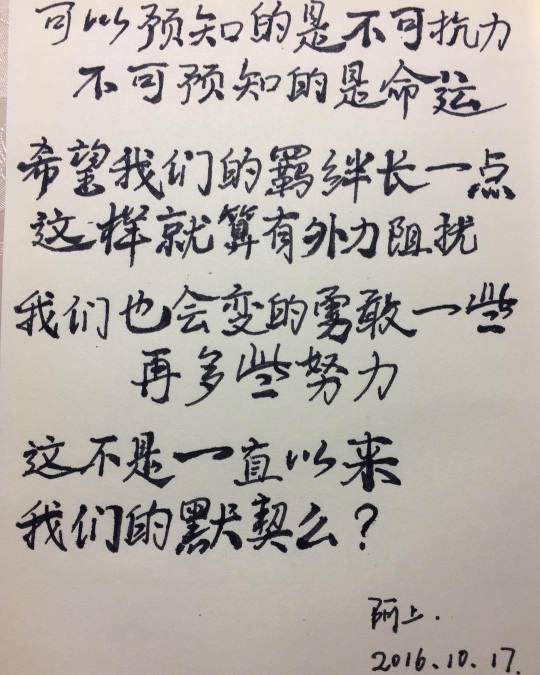 可以预知的是不可抗力
不可预知的是命运
希望我们的羁绊长一点
这样就算有外力阻扰
我们也会变的勇敢一些
再多些努力
这不是一直以来
我们的默契么？
阿上.
2016.10.17.